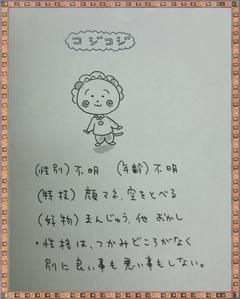 コジコジ
(性別) 不明 (年齢) 不明
(特技) 顔マネ、空をとべる
(好物) まんじゅう、他 おかし
・性格は、つかみどころがなく
別に良い事も悪い事もしない。